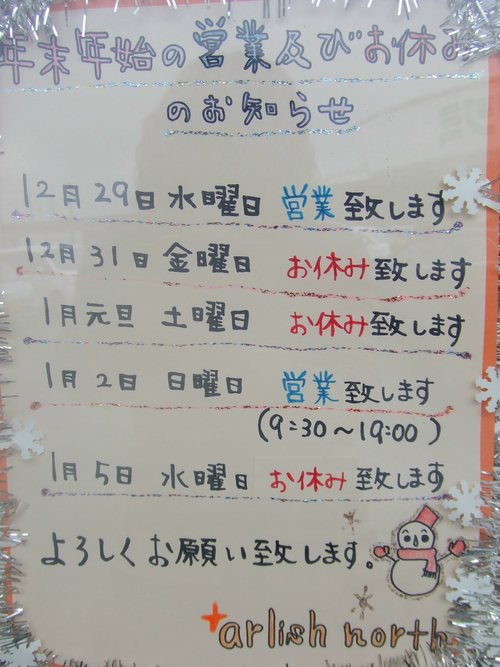 年末年始の営業及びお休み
のお知らせ
12月29日 水曜日 営業致します
12月31日 金曜日 お休み致します
1月元旦 土曜日 お休み致します
1月2日 日曜日 営業致します
(9:30〜19:00)
1月5日 水曜日 お休み致します
よろしくお願い致します。
arlish north